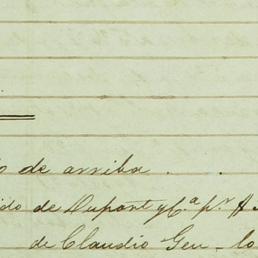 de arriba . .
ido de Dupont y C.ª p.r
de Claudio Geu - lo